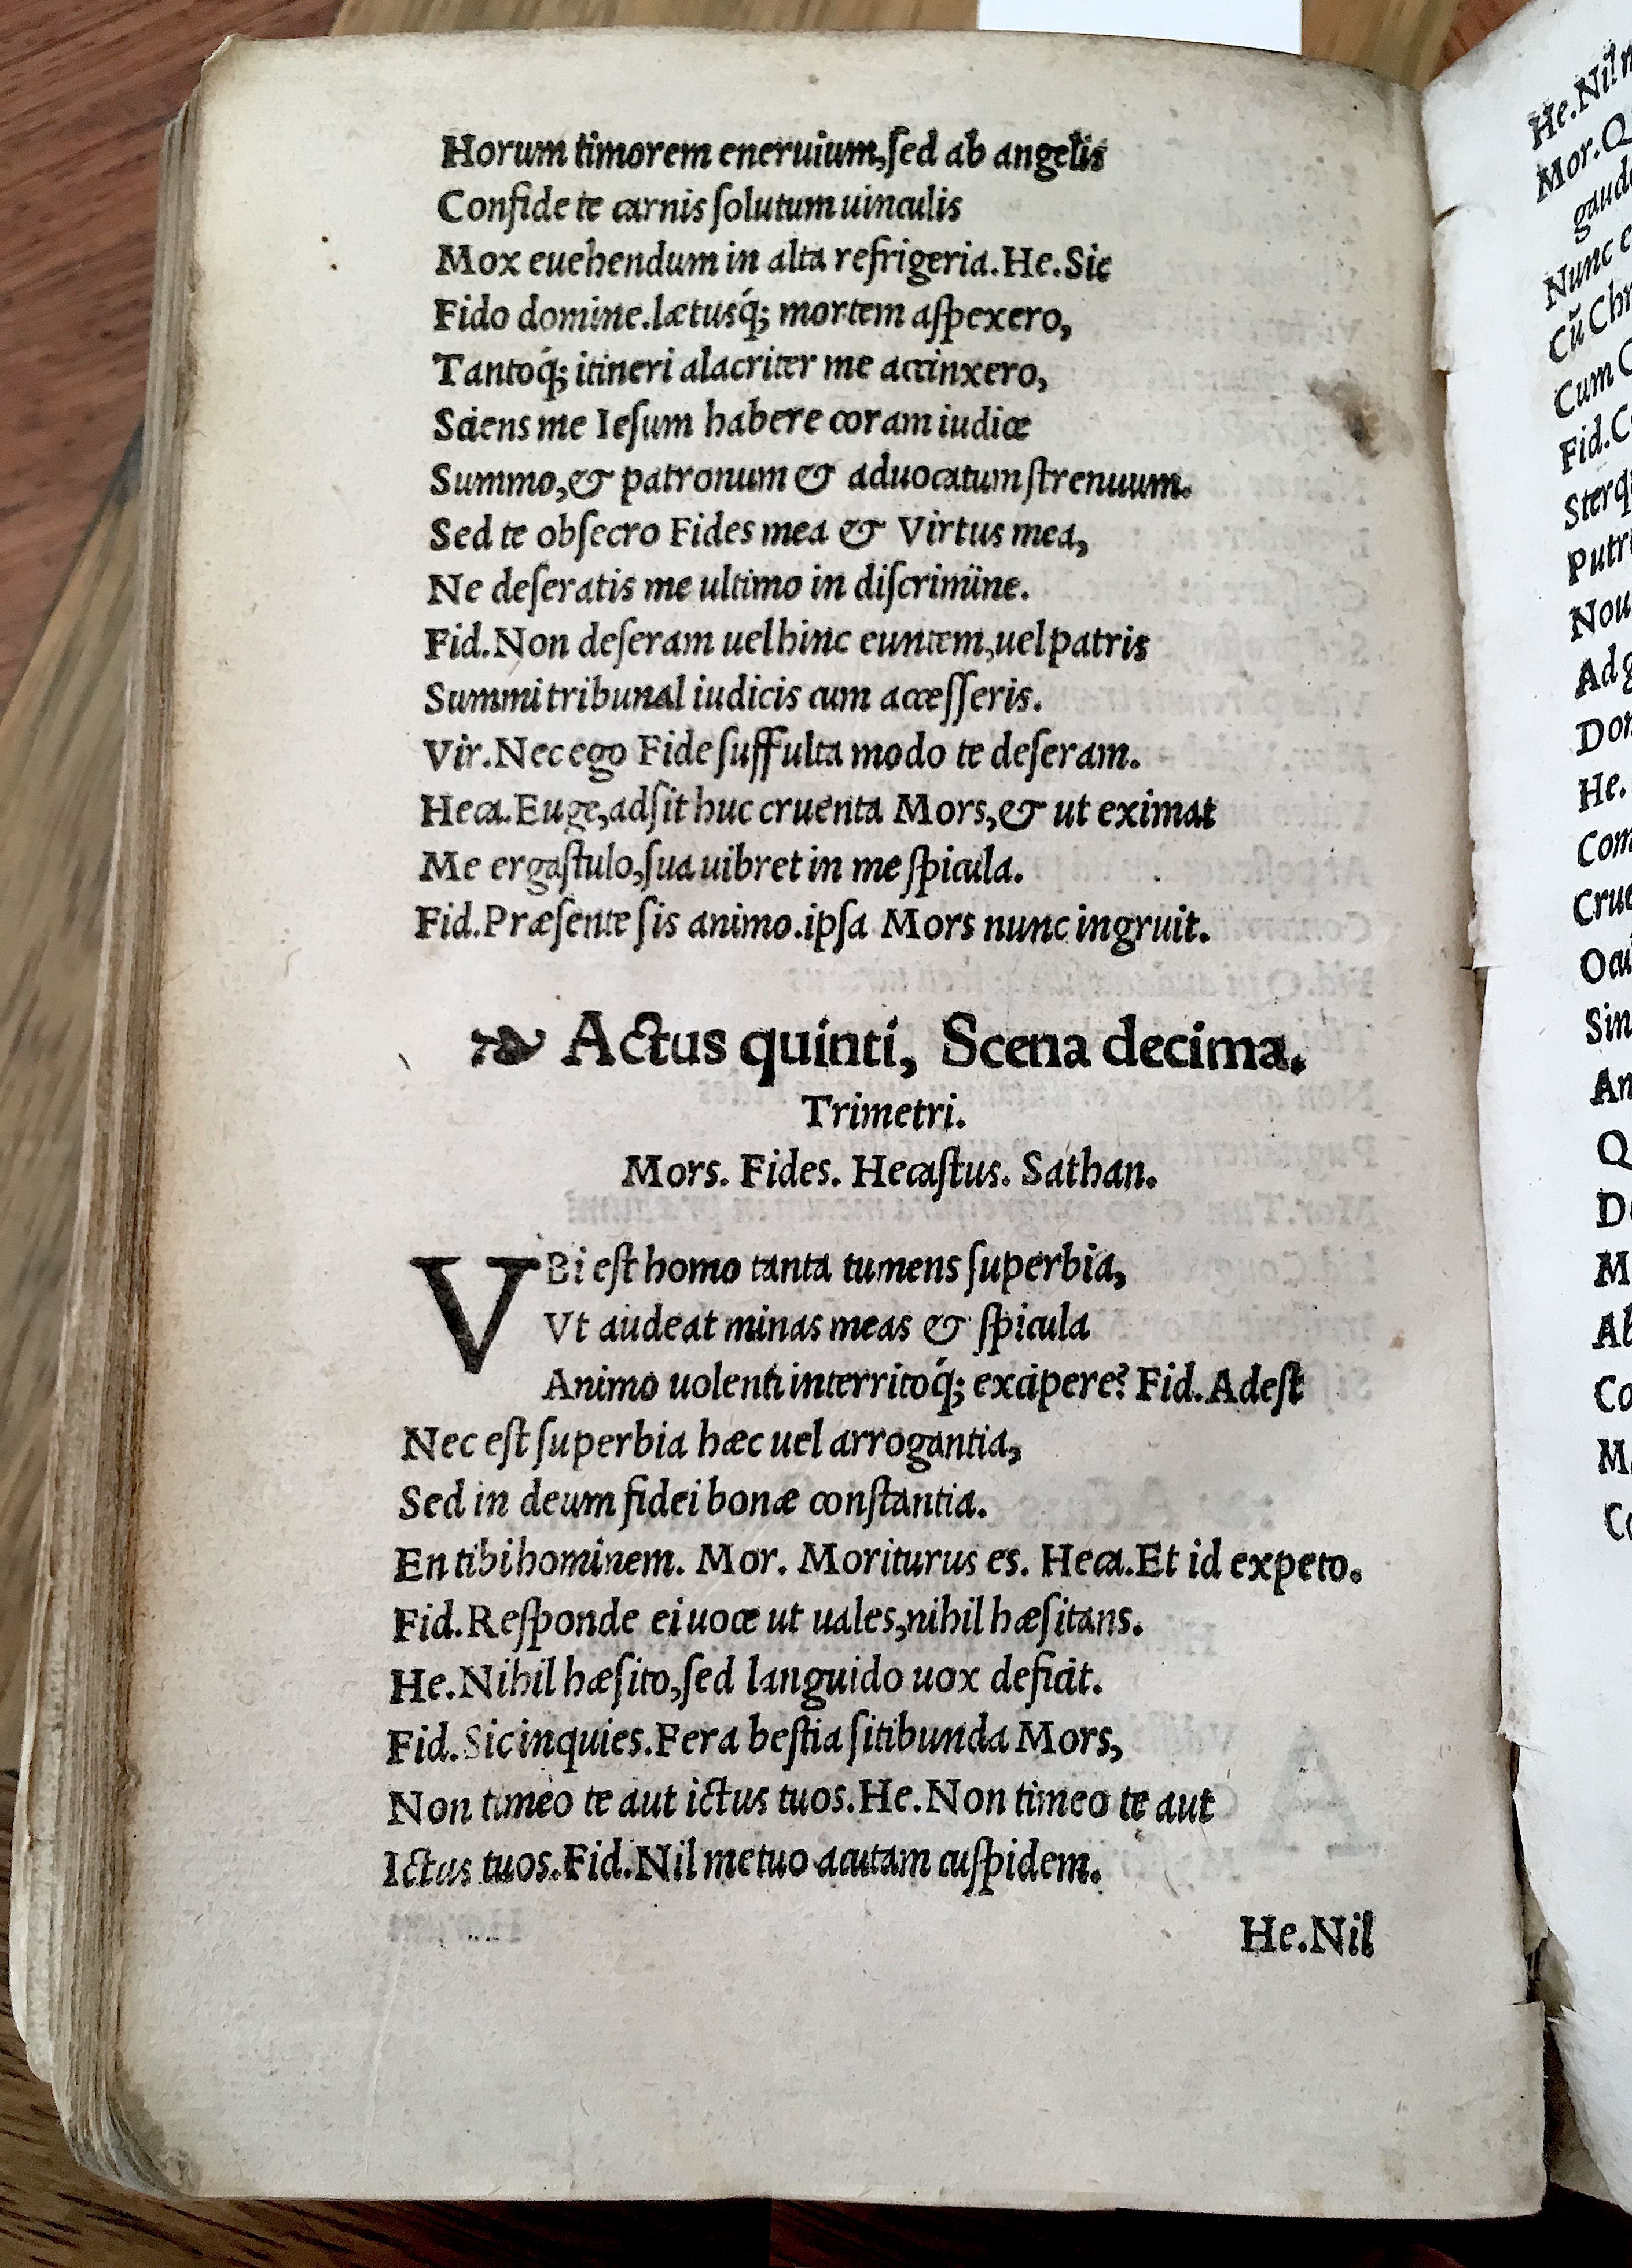 Horum timorem eneruium, ſed ab angelis
Confide te carnis ſolutum uinculis
Mox euehendum in alta refrigeria. He. Sic
Fido domine. lætusq́; mortem aſpexero,
Tantoq́; itineri alacriter me accinxero,
Sciens me Ieſum habere coram iudice
Summo, & patronum & aduocatum ſtrenuum.
Sed te obſecro Fides mea & Virtus mea,
Ne deſeratis me ultimo in diſcrimine.
Fid. Non deſeram uel hinc euntem, uel patris
Summi tribunal iudicis cum acceſſeris.
Vir. Nec ego Fide ſuffulta modo te deſeram.
Heca. Euge, adſit huc cruenta Mors, & ut eximat
Me ergaſtulo, ſua uibret in me ſpicula.
Fid. Præſente ſis animo. ipſa Mors nunc ingruit.
❧ Actus quinti, Scena decima.
Trimetri.
Mors. Fides. Hecaſtus. Sathan.
VBi eſt homo tanta tumens ſuperbia,
Vt audeat minas meas & ſpicula
Animo uolenti interritoq́; excipere? Fid. Adeſt
Nec eſt ſuperbia hæc uel arrogantia,
Sed in deum fidei bonæ conſtantia.
En tibi hominem. Mor. Moriturus es. Heca. Et id expeto.
Fid. Reſponde ei uoce ut uales, nihil hæſitans.
He. Nihil hæſito, ſed languido uox deficit.
Fid. Sic inquies. Fera beſtia ſitibunda Mors,
Non timeo te aut ictus tuos. He. Non timeo te aut
Ictus tuos. Fid. Nil metuo acutam cuſpidem.
He. Nil
He. Nil
Mor. Q
gaud
Nunc e
Cŭ Chr
Cum C
Fid. C
Sterq
Putr
Nou
Ad g
Don
He.
Com
Crue
Ocu
Sin
An
Q
D
M
Ab
Co
M
Co